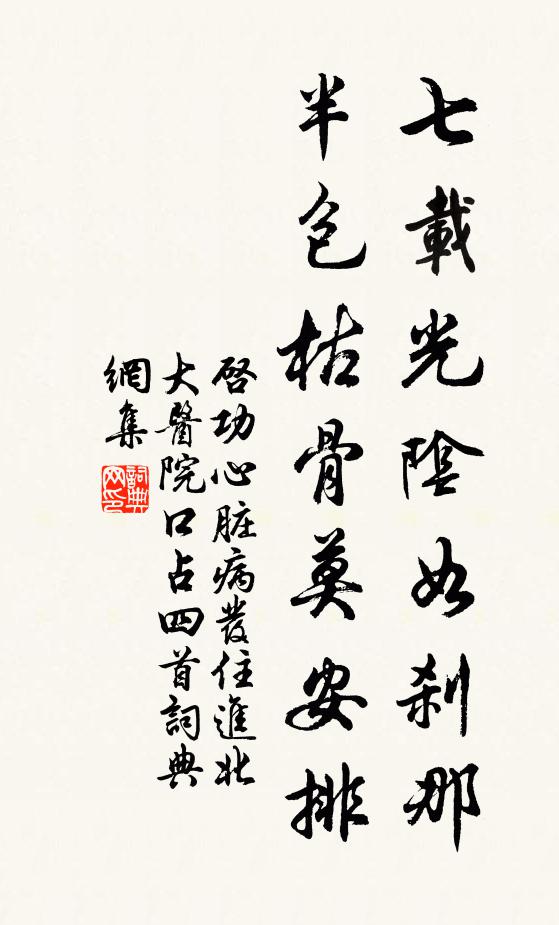 七載光陰如刹那
半包枯骨莫安排
啓功心脏病發住進北
大醫院口占四首詞典
網集
詞典網印